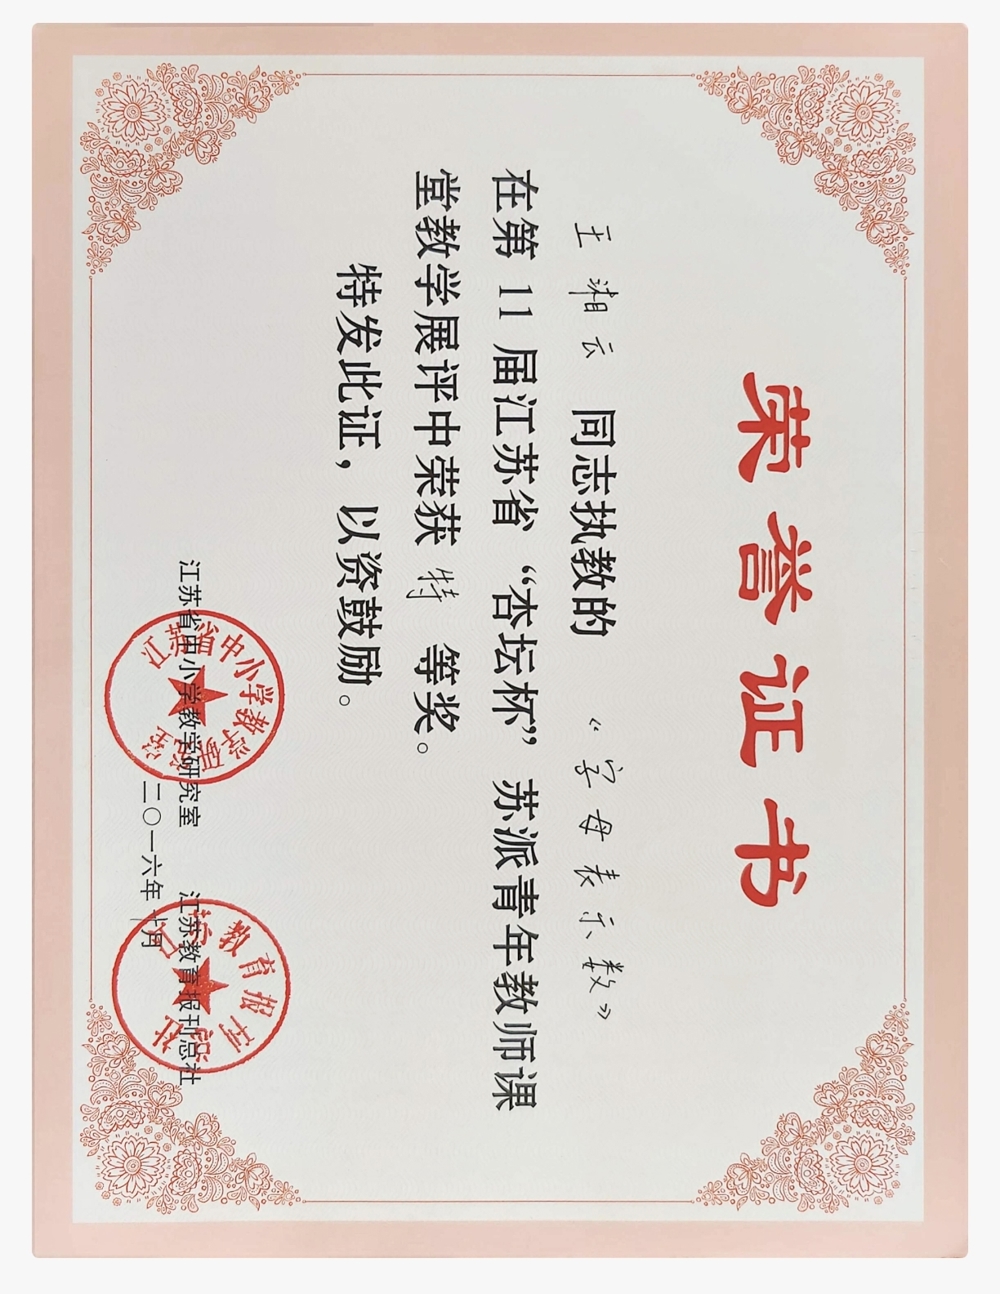 荣誉证书
王湘云 同志执教的 《字母表示数》
在第 11 届江苏省“杏坛杯”苏派青年教师课
堂教学展评中荣获 特 等奖。
特发此证，以资鼓励。
江苏省中小学教学研究室 江苏教育报刊总社
二〇一六年十月
江苏省中小学教学研究室
江苏教育报刊总社